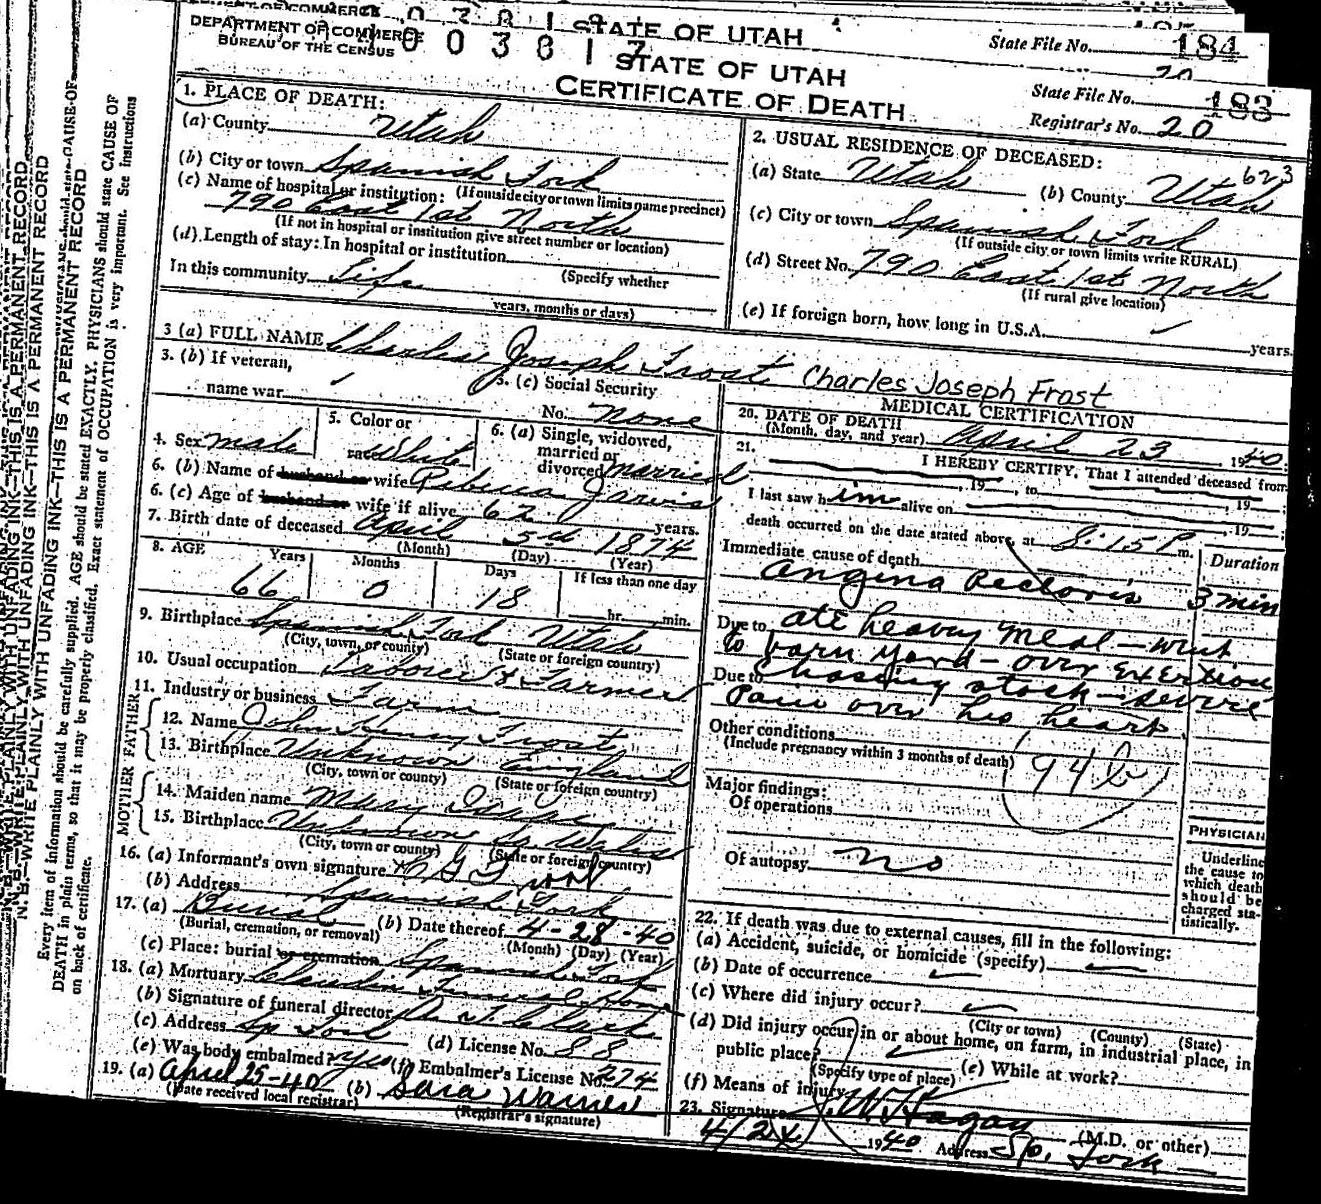 DEPARTMENT OF COMMERCE
BUREAU OF THE CENSUS
STATE OF UTAH
State File No. 184
20
003817
STATE OF UTAH
CERTIFICATE OF DEATH
State File No. 183
Registrar's No. 20
N. B.—WRITE PLAINLY WITH UNFADING INK—THIS IS A PERMANENT RECORD
Every item of information should be carefully supplied. AGE should be stated EXACTLY. PHYSICIANS should state CAUSE OF
DEATH in plain terms, so that it may be properly classified. Exact statement of OCCUPATION is very important. See instructions
on back of certificate.
1. PLACE OF DEATH:
(a) County Utah
(b) City or town Spanish Fork
(If outside city or town limits name precinct)
(c) Name of hospital or institution:
790 East 1st North
(If not in hospital or institution give street number or location)
(d) Length of stay: In hospital or institution
(Specify whether
In this community Life
years, months or days)
2. USUAL RESIDENCE OF DECEASED:
623
(a) State Utah (b) County Utah
(c) City or town Spanish Fork
(If outside city or town limits write RURAL)
(d) Street No. 790 East 1st North
(If rural give location)
(e) If foreign born, how long in U.S.A. years.
3 (a) FULL NAME Charles Joseph Frost Charles Joseph Frost
3. (b) If veteran,
name war
3. (c) Social Security
No. none
4. Sex male
5. Color or
race White
6. (a) Single, widowed,
married or
divorced married
6. (b) Name of husband or wife Rebecca Jarvis
6. (c) Age of husband or wife if alive 62 years.
7. Birth date of deceased April 5th 1874
(Month) (Day) (Year)
8. AGE Years Months Days If less than one day
66 0 18 hr. min.
9. Birthplace Spanish Fork Utah
(City, town, or county) (State or foreign country)
10. Usual occupation Laborer & Farmer
11. Industry or business Farm
FATHER
12. Name John Henry Frost
13. Birthplace Unknown England
(City, town or county) (State or foreign country)
MOTHER
14. Maiden name Mary
15. Birthplace Unknown So. Wales
(City, town or county) (State or foreign country)
16. (a) Informant's own signature
(b) Address Spanish Fork
17. (a) Burial (b) Date thereof 4-28-40
(Burial, cremation, or removal) (Month) (Day) (Year)
(c) Place: burial or cremation Spanish Fork
18. (a) Mortuary Claudin Funeral Home
(b) Signature of funeral director
(c) Address Sp. Fork (d) License No. 88
(e) Was body embalmed? yes (f) Embalmer's License No. 274
19. (a) April 25-40 (b) Sara Warner
(Date received local registrar) (Registrar's signature)
MEDICAL CERTIFICATION
20. DATE OF DEATH
(Month, day, and year) April 23 1940
21. I HEREBY CERTIFY, That I attended deceased from
, 19 , to , 19
I last saw him alive on , 19 ;
death occurred on the date stated above, at 8:15 P m.
Immediate cause of death Duration
Angina Pectoris 3 min
Due to ate heavy meal — went
to barn yard — over exertion
Due to Chasing stock — severe
Pain over his heart
Other conditions
(Include pregnancy within 3 months of death)
94b
Major findings:
Of operations
Of autopsy no
PHYSICIAN
Underline
the cause to
which death
should be
charged sta-
tistically.
22. If death was due to external causes, fill in the following:
(a) Accident, suicide, or homicide (specify)
(b) Date of occurrence
(c) Where did injury occur?
(City or town) (County) (State)
(d) Did injury occur in or about home, on farm, in industrial place, in
public place? (e) While at work?
(Specify type of place)
(f) Means of injury
23. Signature Hagan (M.D. or other)
4/24 1940 Address Sp. Fork